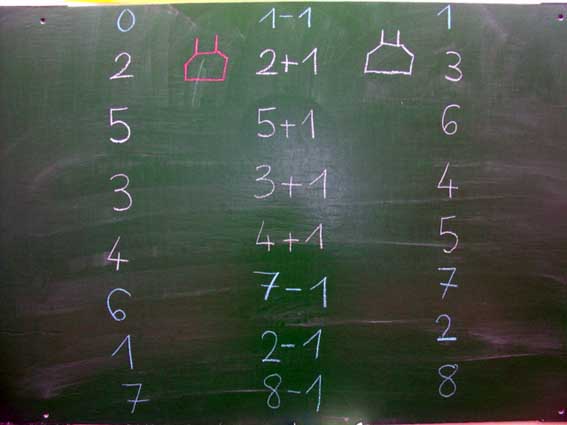 0 1-1 1
2 2+1 3
5 5+1 6
3 3+1 4
4 4+1 5
6 7-1 7
1 2-1 2
7 8-1 8